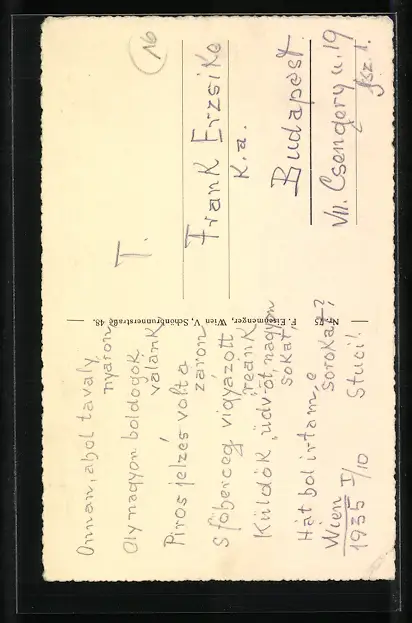 Onnan, ahol tavaly
nyáron
Oly nagyon boldogok
valánk
Piros jelzés volt a
záron
S főherceg vigyázott
reánk
Küldök üdvöt, nagyon
sokat,
Hát hol irtam e
sorokat?
Wien
1935 I/10 Stuci!
Nr. 75 F. Eisenmenger, Wien V, Schönbrunnerstraße 48.
16
T.
Frank Erzsike
k.a.
Budapest
VII. Csengery u. 19
fsz. 1.